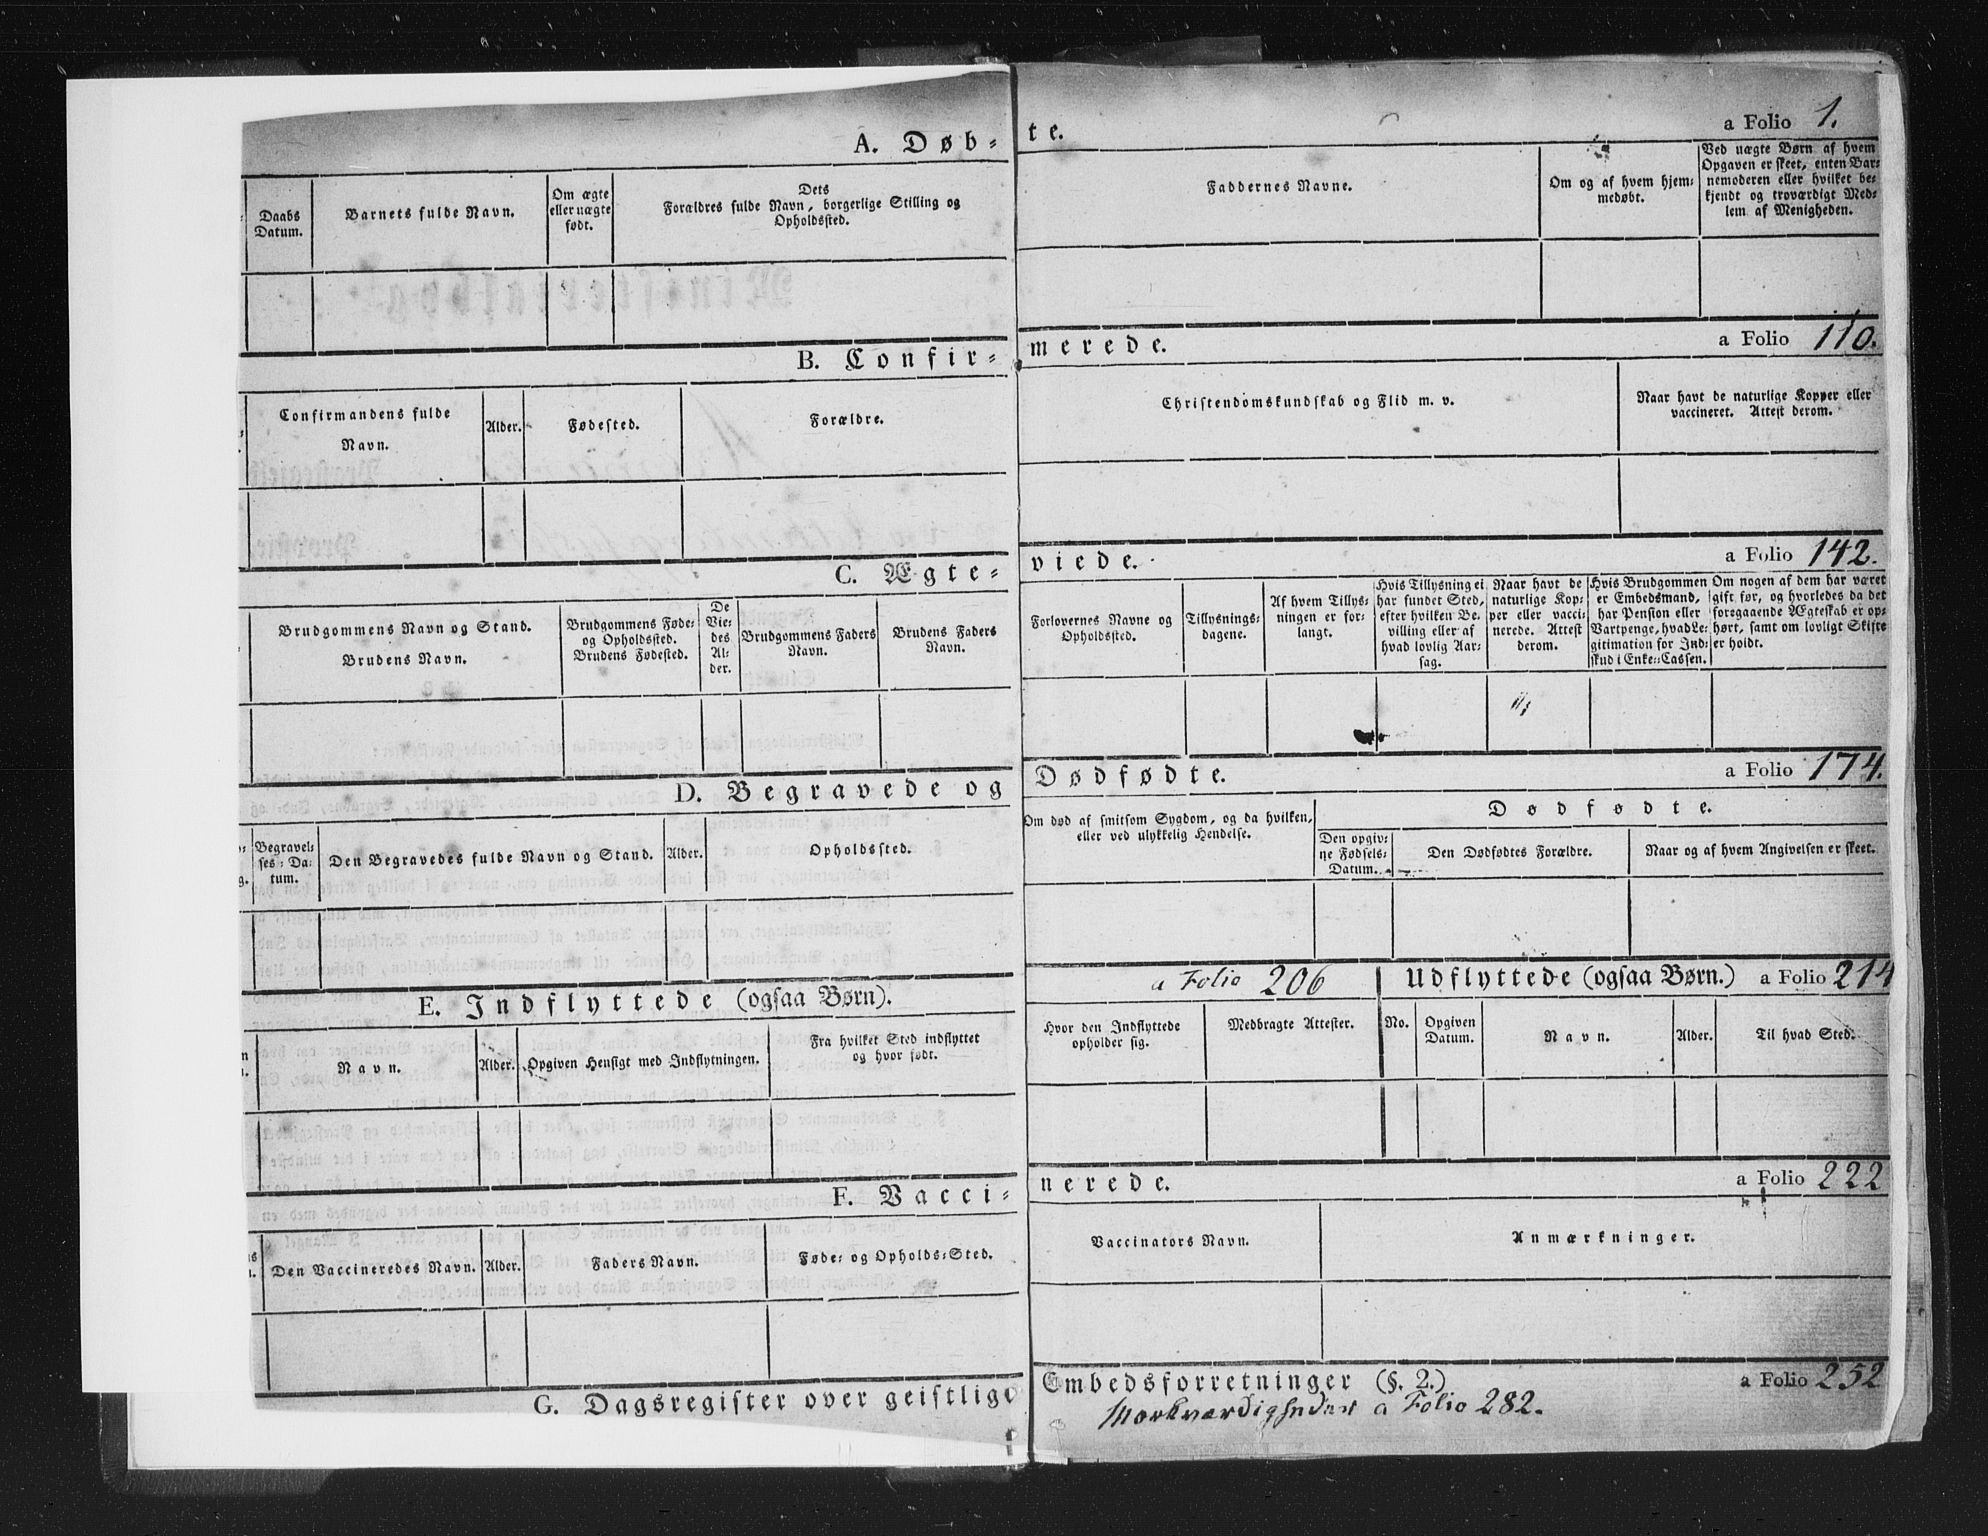 A. Døb-
te.
a Folio 1.
Daabs
Datum.
Barnets fulde Navn.
Om ægte
eller uægte
født.
Dets
Forældres fulde Navn, borgerlige Stilling og
Opholdssted.
Faddernes Navne.
Om og af hvem hjem-
medøbt.
Ved uægte Børn af hvem
Opgaven er skeet, enten Bar-
nemoderen eller hvilket be-
kjendt og troværdigt Med-
lem af Menigheden.
B. Confir-
merede.
a Folio 110.
Confirmandens fulde
Navn.
Alder.
Fødested.
Forældre.
Christendomskundskab og Flid m. v.
Naar havt de naturlige Kopper eller
vaccineret. Attest derom.
C. Ægte-
viede.
a Folio 142.
Brudgommens Navn og Stand.
Brudens Navn.
Brudgommens Føde-
og Opholdssted.
Brudens Fødested.
De
Vie-
des
Al-
der.
Brudgommens Faders
Navn.
Brudens Faders
Navn.
Forlovernes Navne og
Opholdssted.
Tillysnings-
dagene.
Af hvem Tillys-
ningen er for-
langt.
Hvis Tillysning ei
har fundet Sted,
efter hvilken Be-
villing eller af
hvad lovlig Aar-
sag.
Naar havt de
naturlige Kop-
per eller vacci-
nerede. Attest
derom.
Hvis Brudgommen
er Embedsmand,
har Pension eller
Vartpenge, hvad Le-
gitimation for Ind-
skud i Enke-Cassen.
Om nogen af dem har været
gift før, og hvorledes da det
foregaaende Ægteskab er op-
hørt, samt om lovligt Skifte
er holdt.
D. Begravede og
Dødfødte.
a Folio 174.
Begravel-
ses-Da-
tum.
Den Begravedes fulde Navn og Stand.
Alder.
Opholdssted.
Om død af smitsom Sygdom, og da hvilken,
eller ved ulykkelig Hendelse.
Dødfødte.
Den opgiv-
ne Fødsels-
Datum.
Den Dødfødtes Forældre.
Naar og af hvem Angivelsen er skeet.
E. Indflyttede (ogsaa Børn).
a Folio 206
Udflyttede (ogsaa Børn.)
a Folio 214
Navn.
Alder.
Opgiven Hensigt med Indflytningen.
Fra hvilket Sted indflyttet
og hvor født.
Hvor den Indflyttede
opholder sig.
Medbragte Attester.
No.
Opgiven
Datum.
Navn.
Alder.
Til hvad Sted.
F. Vacci-
nerede.
a Folio 222
Den Vaccineredes Navn.
Alder.
Faders Navn.
Føde- og Opholds-Sted.
Vaccinators Navn.
Anmærkninger.
G. Dagsregister over geistlige
Embedsforretninger (§. 2.)
a Folio 252
Mærkværdigheder a Folio 282.